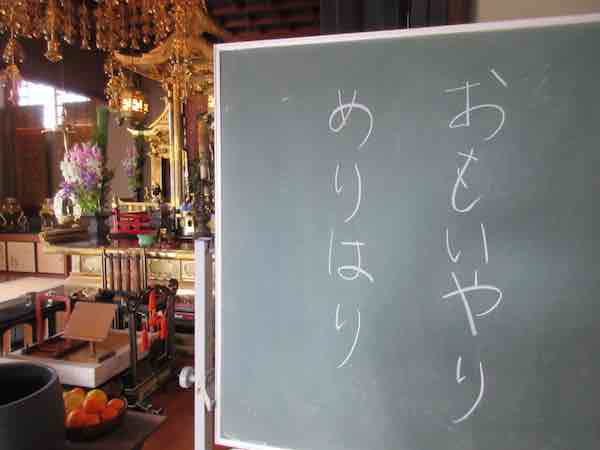 おもいやり
めりはり